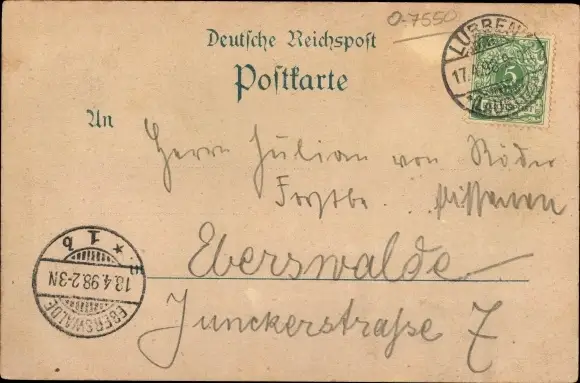 O-7550
Deutsche Reichspost
Postkarte
LÜBBEN
17.4.98
(LAUSITZ)
5
An
Herrn Julian von Röder
Forstbe.
Eberswalde
Junckerstraße 7.
EBERSWALDE
18.4.98.2-3N
* 1b